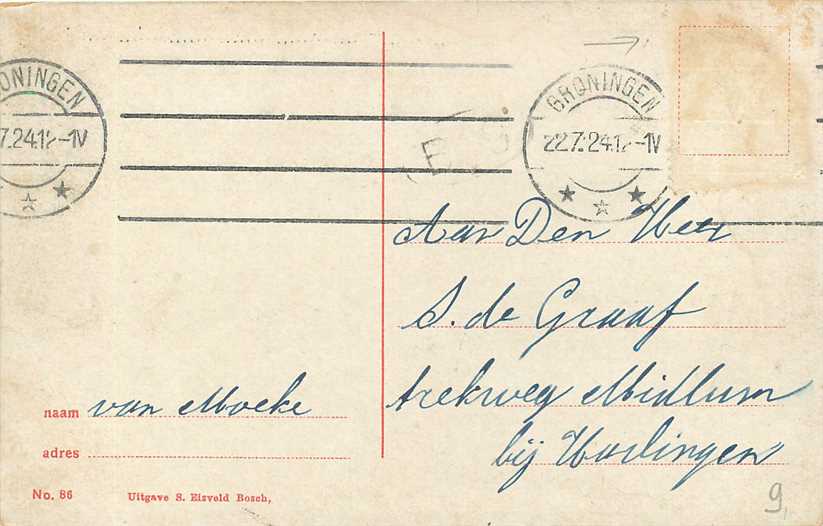 ONINGEN
7.24.12-1V
GRONINGEN
22.7.24.12-1V
E
Aan Den Heer
S. de Graaf
trekweg Midlum
bij Harlingen
naam van Moeke
adres
No. 86 Uitgave S. Eizveld Bosch,
9,